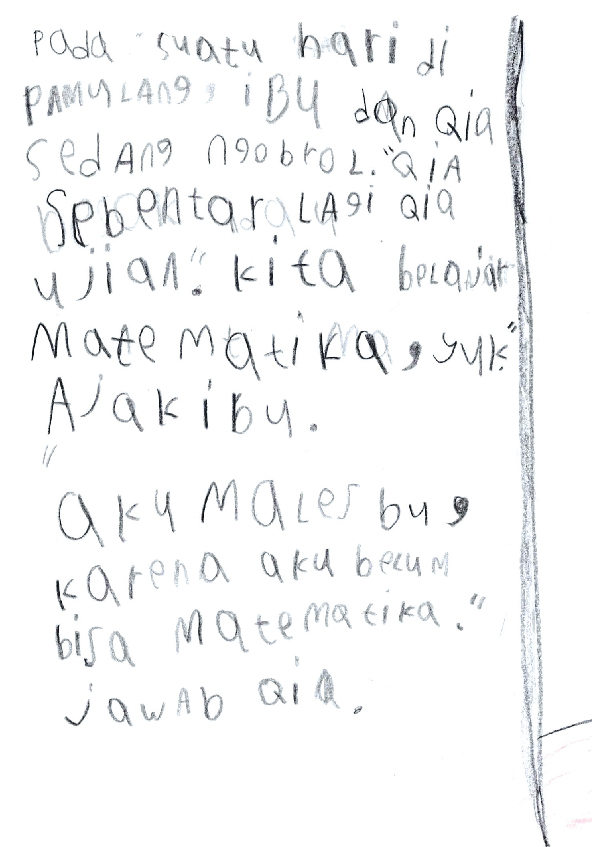 Pada suatu hari di
PAMULANg, iBU dan QiA
SedANg NgobroL. "QiA
SebentarLAgi Qia
ujian". kita beLajar
MateMatika, yuk"
Ajak ibu.
"
aku MaLes bu,
karena aku beLuM
bisa MateMatika."
jawAb Qia.